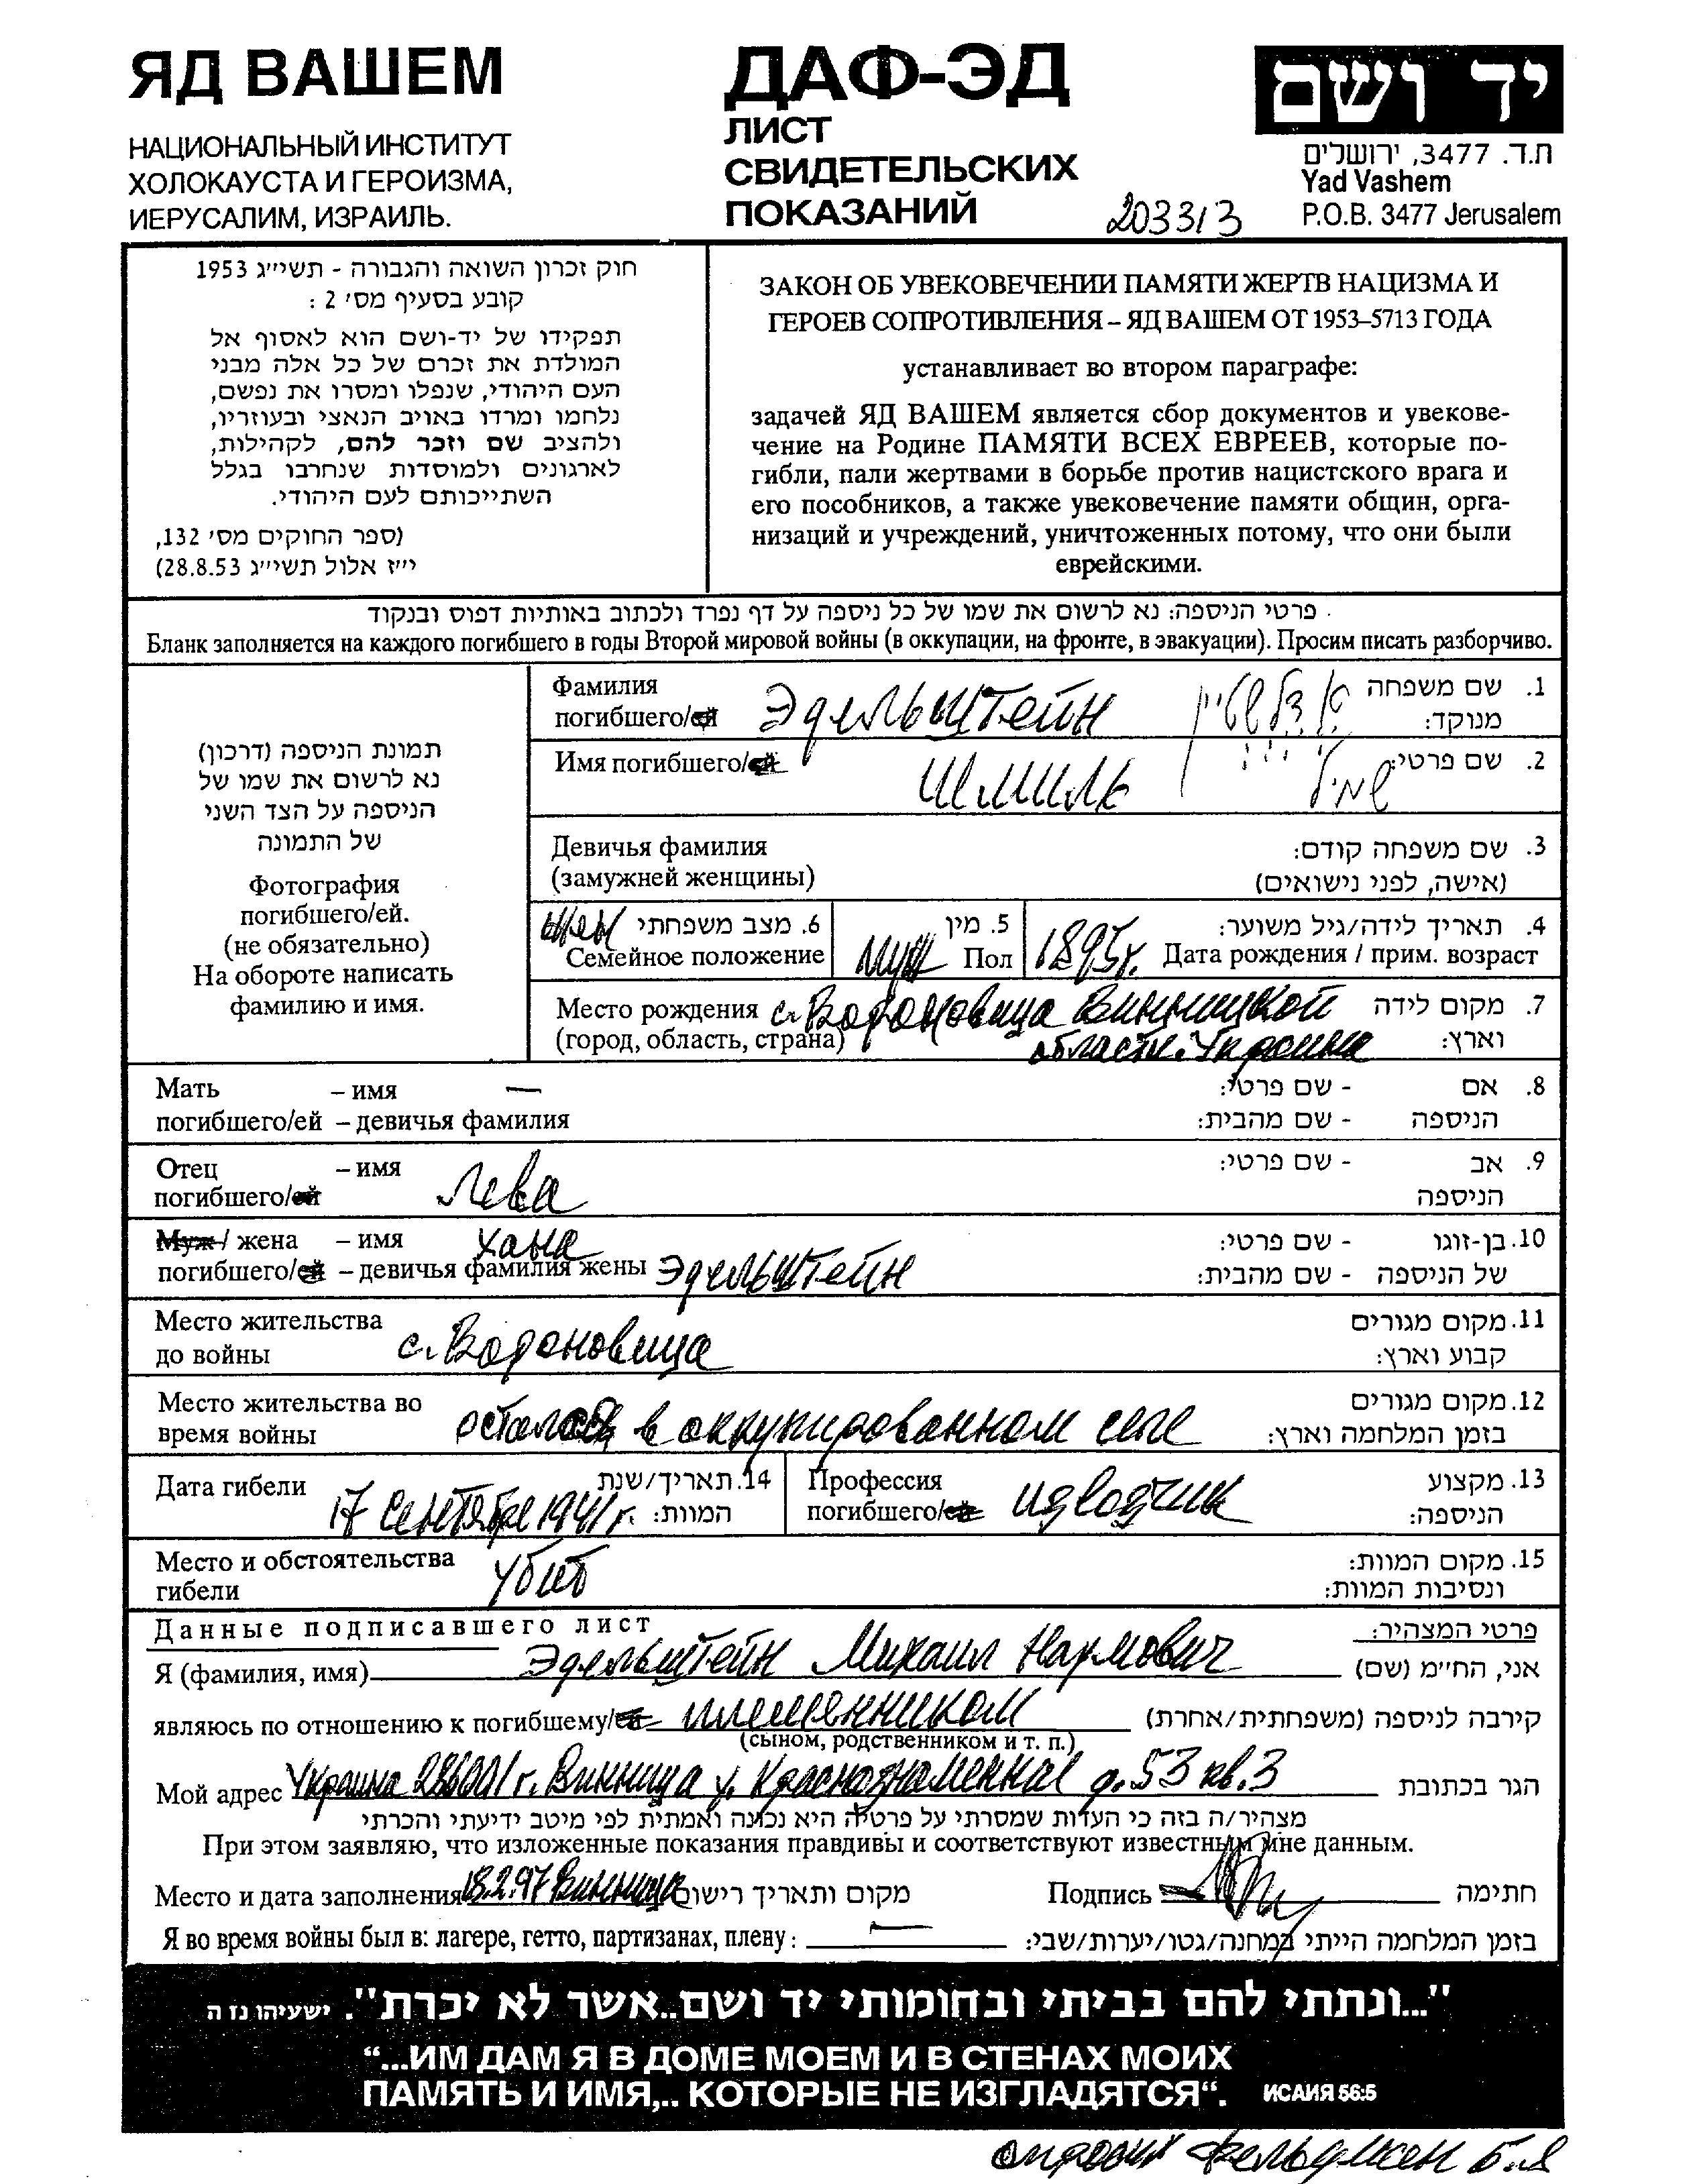 ЯД ВАШЕМ
НАЦИОНАЛЬНЫЙ ИНСТИТУТ
ХОЛОКАУСТА И ГЕРОИЗМА,
ИЕРУСАЛИМ, ИЗРАИЛЬ.
ДАФ-ЭД
ЛИСТ
СВИДЕТЕЛЬСКИХ
ПОКАЗАНИЙ
203313
יד ושם
ת.ד. 3477, ירושלים
Yad Vashem
P.O.B. 3477 Jerusalem
חוק זכרון השואה והגבורה - תשי״ג 1953
קובע בסעיף מס׳ 2 :
תפקידו של יד-ושם הוא לאסוף אל
המולדת את זכרם של כל אלה מבני
העם היהודי, שנפלו ומסרו את נפשם,
נלחמו ומרדו באויב הנאצי ובעוזריו,
ולהציב שם וזכר להם, לקהילות,
לארגונים ולמוסדות שנחרבו בגלל
השתייכותם לעם היהודי.
(ספר החוקים מס׳ 132,
י״ז אלול תשי״ג 28.8.53)
ЗАКОН ОБ УВЕКОВЕЧЕНИИ ПАМЯТИ ЖЕРТВ НАЦИЗМА И
ГЕРОЕВ СОПРОТИВЛЕНИЯ – ЯД ВАШЕМ ОТ 1953–5713 ГОДА
устанавливает во втором параграфе:
задачей ЯД ВАШЕМ является сбор документов и увекове-
чение на Родине ПАМЯТИ ВСЕХ ЕВРЕЕВ, которые по-
гибли, пали жертвами в борьбе против нацистского врага и
его пособников, а также увековечение памяти общин, орга-
низаций и учреждений, уничтоженных потому, что они были
еврейскими.
פרטי הניספה: נא לרשום את שמו של כל ניספה על דף נפרד ולכתוב באותיות דפוס ובנקוד
Бланк заполняется на каждого погибшего в годы Второй мировой войны (в оккупации, на фронте, в эвакуации). Просим писать разборчиво.
תמונת הניספה (דרכון)
נא לרשום את שמו של
הניספה על הצד השני
של התמונה
Фотография
погибшего/ей.
(не обязательно)
На обороте написать
фамилию и имя.
Фамилия שם משפחה .1
погибшего/ей Эдельштейн אדלשטיין מנוקד:
Имя погибшего/ей Шмиль שמיל שם פרטי: .2
Девичья фамилия שם משפחה קודם: .3
(замужней женщины) (אישה, לפני נישואים)
жен 6. מצב משפחתי 5. מין תאריך לידה/גיל משוער: .4
Семейное положение муж Пол 1895г. Дата рождения / прим. возраст
Место рождения с. Вороновица Винницкой מקום לידה .7
(город, область, страна) области. Украина וארץ:
Мать – имя — - שם פרטי: אם .8
погибшего/ей – девичья фамилия - שם מהבית: הניספה
Отец – имя - שם פרטי: אב .9
погибшего/ей Лева הניספה
Муж / жена – имя Хана - שם פרטי: בן-זוגו .10
погибшего/ей – девичья фамилия жены Эдельштейн - שם מהבית: של הניספה
Место жительства מקום מגורים .11
до войны с. Вороновица קבוע וארץ:
Место жительства во מקום מגורים .12
время войны остался в оккупированном селе בזמן המלחמה וארץ:
Дата гибели 14. תאריך/שנת Профессия מקצוע .13
17 Сентября 1941 г. המוות: погибшего/ей извозчик הניספה:
Место и обстоятельства מקום המוות: .15
гибели убит ונסיבות המוות:
Данные подписавшего лист פרטי המצהיר:
Я (фамилия, имя) Эдельштейн Михаил Наумович אני, הח״מ (שם)
являюсь по отношению к погибшему/ей племянником קירבה לניספה (משפחתית/אחרת)
(сыном, родственником и т. п.)
Мой адрес Украина 286001 г. Винница у. Краснознаменная д. 53 кв. 3 הגר בכתובת
מצהיר/ה בזה כי העדות שמסרתי על פרטיה היא נכונה ואמתית לפי מיטב ידיעתי והכרתי
При этом заявляю, что изложенные показания правдивы и соответствуют известным мне данным.
Место и дата заполнения 18.2.97 Винница מקום ותאריך רישום Подпись חתימה
Я во время войны был в: лагере, гетто, партизанах, плену : — בזמן המלחמה הייתי במחנה/גטו/יערות/שבי:
"...ונתתי להם בביתי ובחומותי יד ושם..אשר לא יכרת". ישעיהו נז ה
“...ИМ ДАМ Я В ДОМЕ МОЕМ И В СТЕНАХ МОИХ
ПАМЯТЬ И ИМЯ,.. КОТОРЫЕ НЕ ИЗГЛАДЯТСЯ“. ИСАИЯ 56:5
опросил Фельдман Б.Я